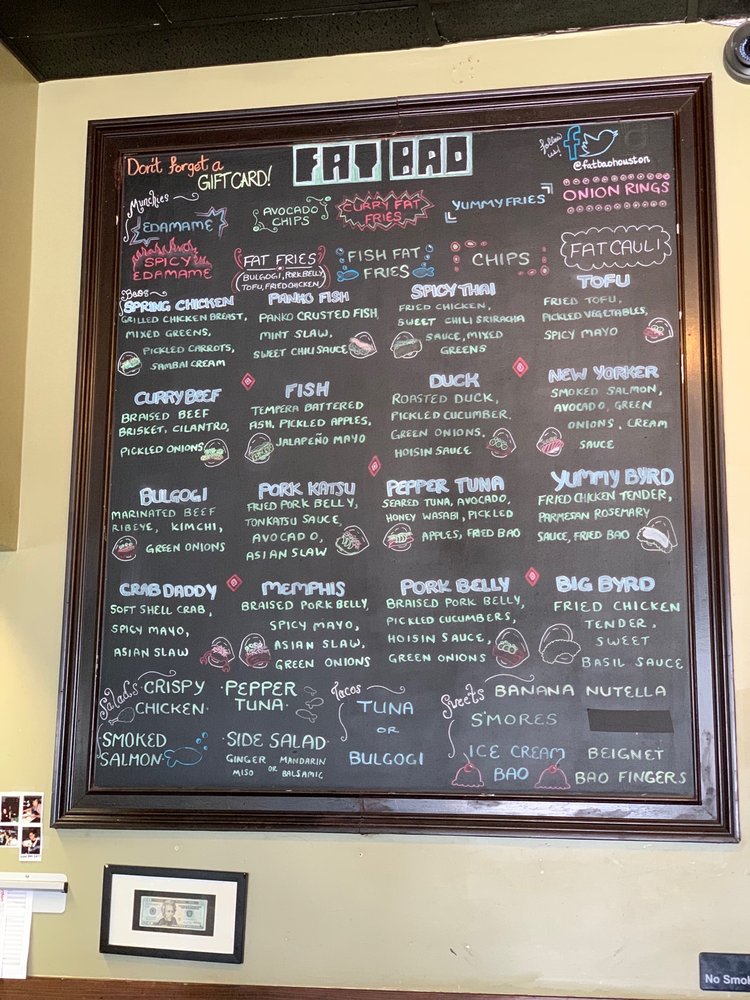 Don't forget a
GIFT CARD!
FAT BAO
follow us!
@fatbaohouston
Munchies
EDAMAME
AVOCADO
CHIPS
CURRY FAT
FRIES
YUMMY FRIES
ONION RINGS
SPICY
EDAMAME
FAT FRIES
BULGOGI, PORK BELLY
TOFU, FRIED CHICKEN
FISH FAT
FRIES
CHIPS
FAT CAULI
Baos
SPRING CHICKEN
GRILLED CHICKEN BREAST,
MIXED GREENS,
PICKLED CARROTS,
SAMBAI CREAM
PANKO FISH
PANKO CRUSTED FISH
MINT SLAW,
SWEET CHILI SAUCE
SPICY THAI
FRIED CHICKEN,
SWEET CHILI SRIRACHA
SAUCE, MIXED
GREENS
TOFU
FRIED TOFU,
PICKLED VEGETABLES,
SPICY MAYO
CURRY BEEF
BRAISED BEEF
BRISKET, CILANTRO,
PICKLED ONIONS
FISH
TEMPERA BATTERED
FISH, PICKLED APPLES,
JALAPEÑO MAYO
DUCK
ROASTED DUCK,
PICKLED CUCUMBER,
GREEN ONIONS,
HOISIN SAUCE
NEW YORKER
SMOKED SALMON,
AVOCADO, GREEN
ONIONS, CREAM
SAUCE
BULGOGI
MARINATED BEEF
RIBEYE, KIMCHI,
GREEN ONIONS
PORK KATSU
FRIED PORK BELLY,
TONKATSU SAUCE,
AVOCADO,
ASIAN SLAW
PEPPER TUNA
SEARED TUNA, AVOCADO,
HONEY WASABI, PICKLED
APPLES, FRIED BAO
YUMMY BYRD
FRIED CHICKEN TENDER,
PARMESAN ROSEMARY
SAUCE, FRIED BAO
CRAB DADDY
SOFT SHELL CRAB,
SPICY MAYO,
ASIAN SLAW
MEMPHIS
BRAISED PORK BELLY,
SPICY MAYO,
ASIAN SLAW,
GREEN ONIONS
PORK BELLY
BRAISED PORK BELLY,
PICKLED CUCUMBERS,
HOISIN SAUCE,
GREEN ONIONS
BIG BYRD
FRIED CHICKEN
TENDER,
SWEET
BASIL SAUCE
Salads
CRISPY
CHICKEN
PEPPER
TUNA
SMOKED
SALMON
SIDE SALAD
GINGER MANDARIN
MISO OR BALSAMIC
Tacos
TUNA
OR
BULGOGI
Sweets
BANANA NUTELLA
S'MORES
ICE CREAM
BAO
BEIGNET
BAO FINGERS
No Smo